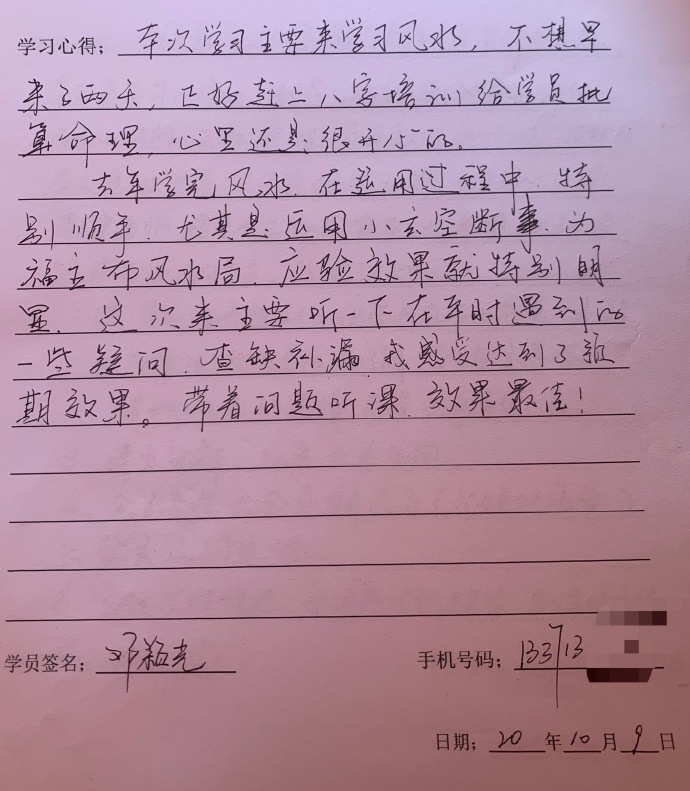 学习心得：本次学习主要来学习风水，不想早
来了两天，正好赶上八字培训给学员批
算命理，心里还是很开心的。
去年学完风水，在应用过程中，特
别顺手，尤其是运用小玄空断事，为
福主布风水局，应验效果就特别明
显，这次来主要听一下在平时遇到的
一些疑问，查缺补漏，我感受达到了预
期效果。带着问题听课，效果最佳！
学员签名：邓 光
手机号码：13313
日期：20年10月9日